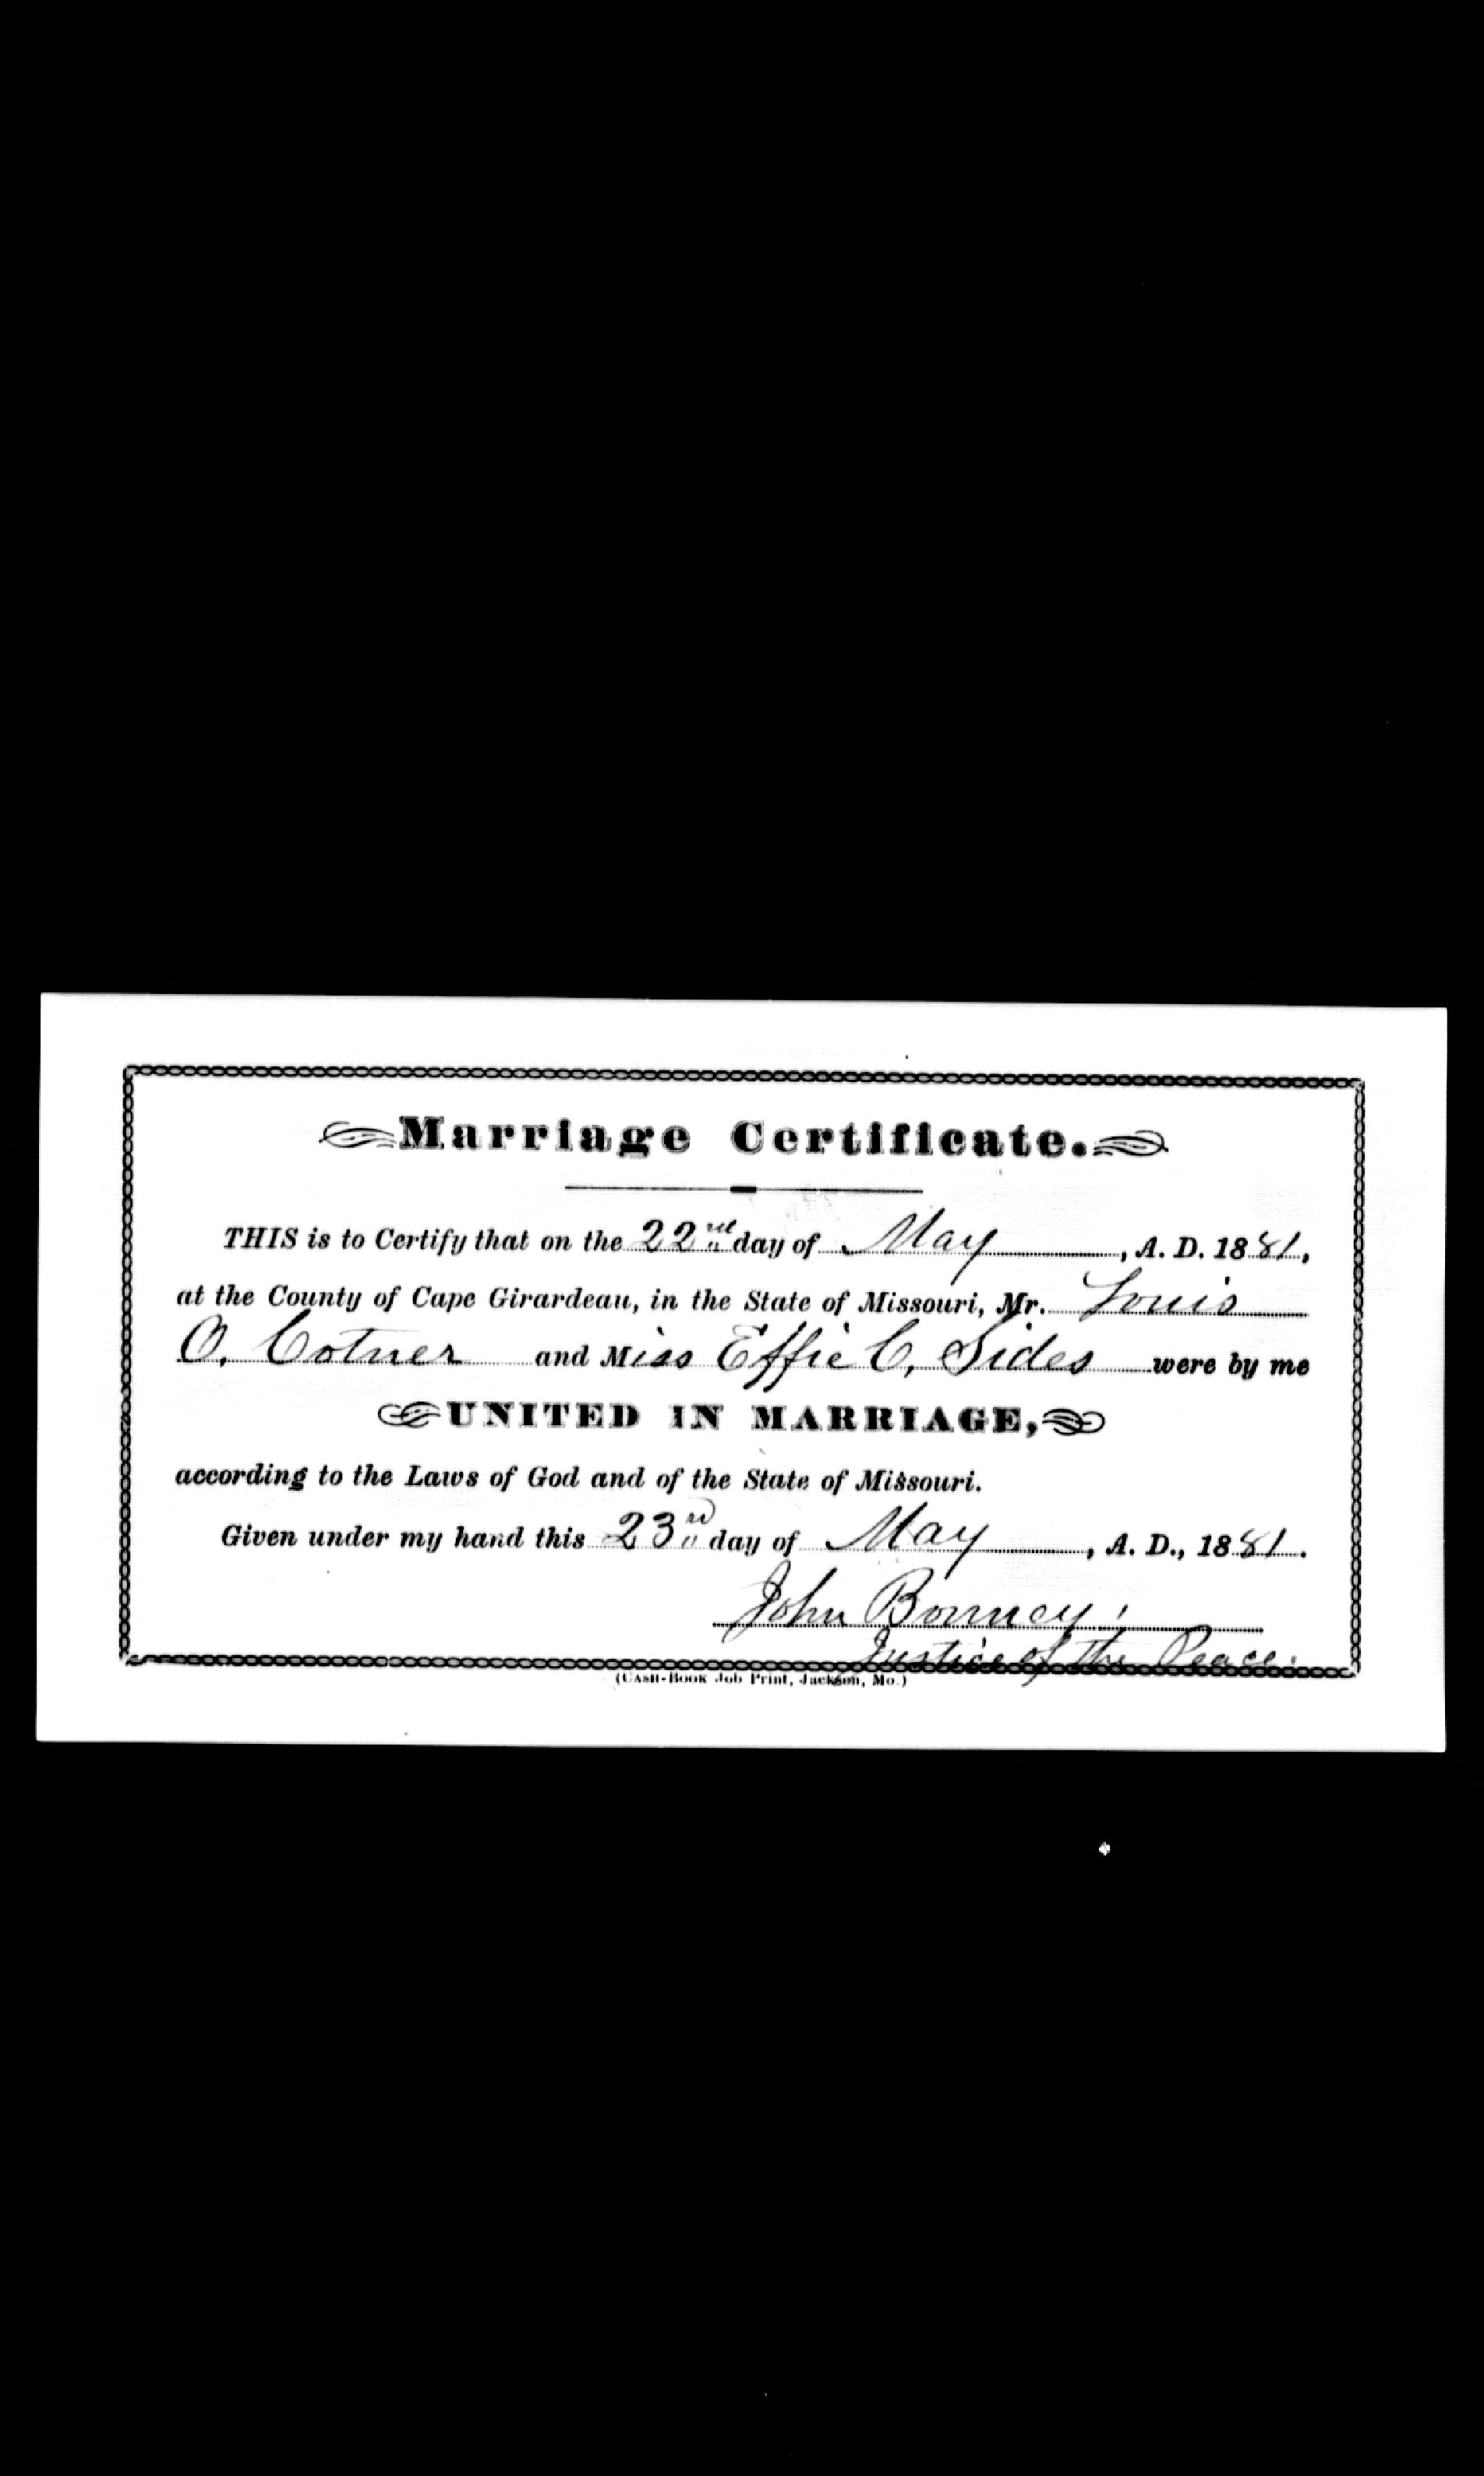 Marriage Certificate.
THIS is to Certify that on the 22nd day of May, A. D. 1881,
at the County of Cape Girardeau, in the State of Missouri, Mr. Louis
O. Cotner and Miss Effie C. Sides were by me
UNITED IN MARRIAGE,
according to the Laws of God and of the State of Missouri.
Given under my hand this 23rd day of May, A. D., 1881.
John Bonney,
Justice of the Peace.
(Cash-Book Job Print, Jackson, Mo.)